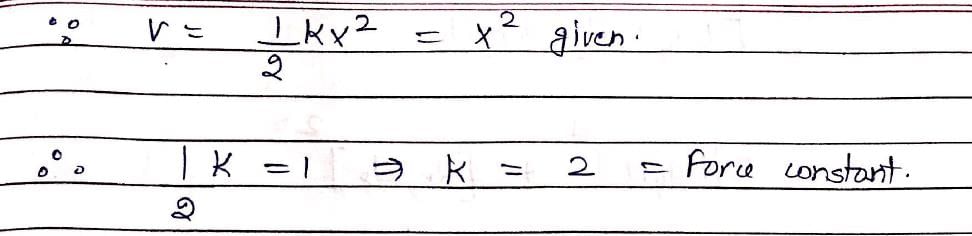 ∵ V = 1/2 kx² = x² given.
∴ 1/2 K = 1 ⇒ K = 2 = Force constant.